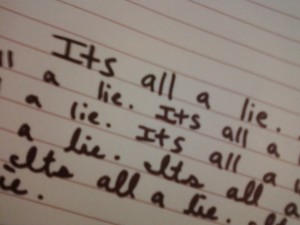 Its all a lie.
all a lie. Its all a
a lie. Its all a
a lie. Its all a
Its all a lie.
lie.